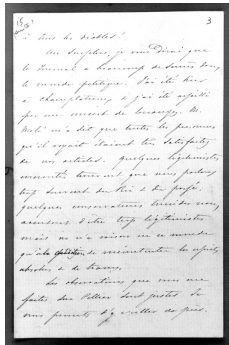 3
à tous les diables !
Au surplus, je vous dirai que
le Journal a beaucoup de succès dans
le monde politique. J'ai été dîner
à et j'ai été
par un concert de louanges. M.
m'a dit que toutes les personnes
qu'il voyait étaient très satisfaites
de nos articles. Quelques légitimistes
trouvent que nous parlons
trop souvent du Roi
quelques conservateurs
accusent d'être trop légitimistes
mais on n'a raison en ce monde
qu'à la condition de mécontenter les esprits
absolus et de travers.
Les observations que vous me
faites sur sont justes. Je
vous promets d'y veiller de près.